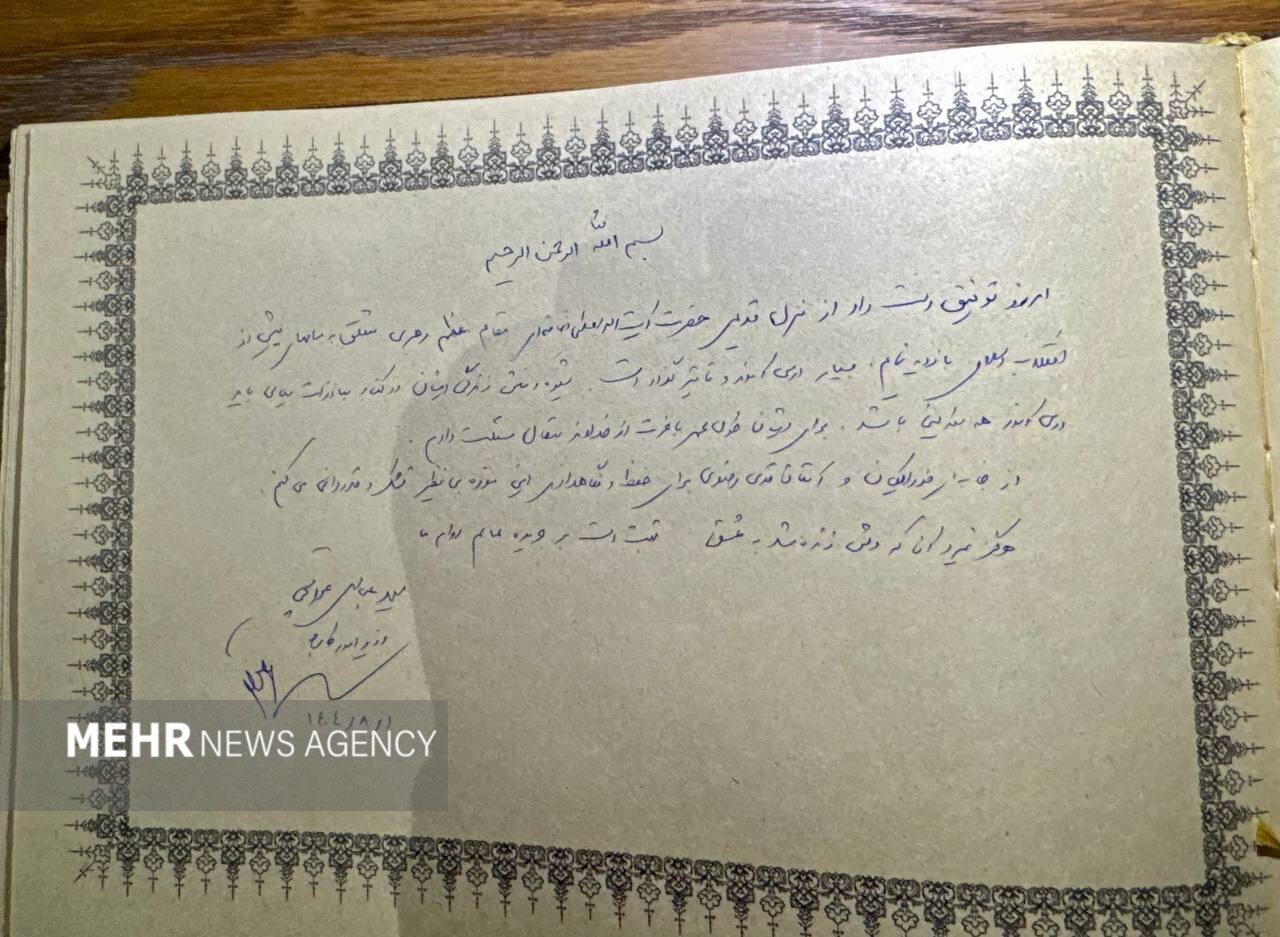 بسم الله الرحمن الرحیم
امروز توفیق دست داد از منزل قدیمی حضرت آیت الله العظمی خامنه‌ای مقام معظم رهبری متعلق به سالهای پیش از
انقلاب اسلامی بازدید نمایم. بسیار درس آموز و تاثیر گذار است. شیوه و منش زندگی ایشان در کنار مبارزات سیاسی باید
درس آموز همه ما باشد. برای ایشان طول عمر با عزت از خداوند متعال مسئلت دارم.
از و آستان قدس رضوی برای حفظ و نگاهداری این موزه بی نظیر تشکر و قدردانی می کنم.
هرگز نمیرد آنکه دلش زنده شد به عشق ثبت است بر جریده عالم دوام ما
سید عباس عراقچی
وزیر امور خارجه
MEHR NEWS AGENCY